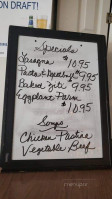 DRAFT!
Specials
Lasagna $10.95
Pasta & Meatball $9.95
Baked Ziti 9.95
Eggplant Parm
$10.95
Soups
Chicken Pastina
Vegetable Beef